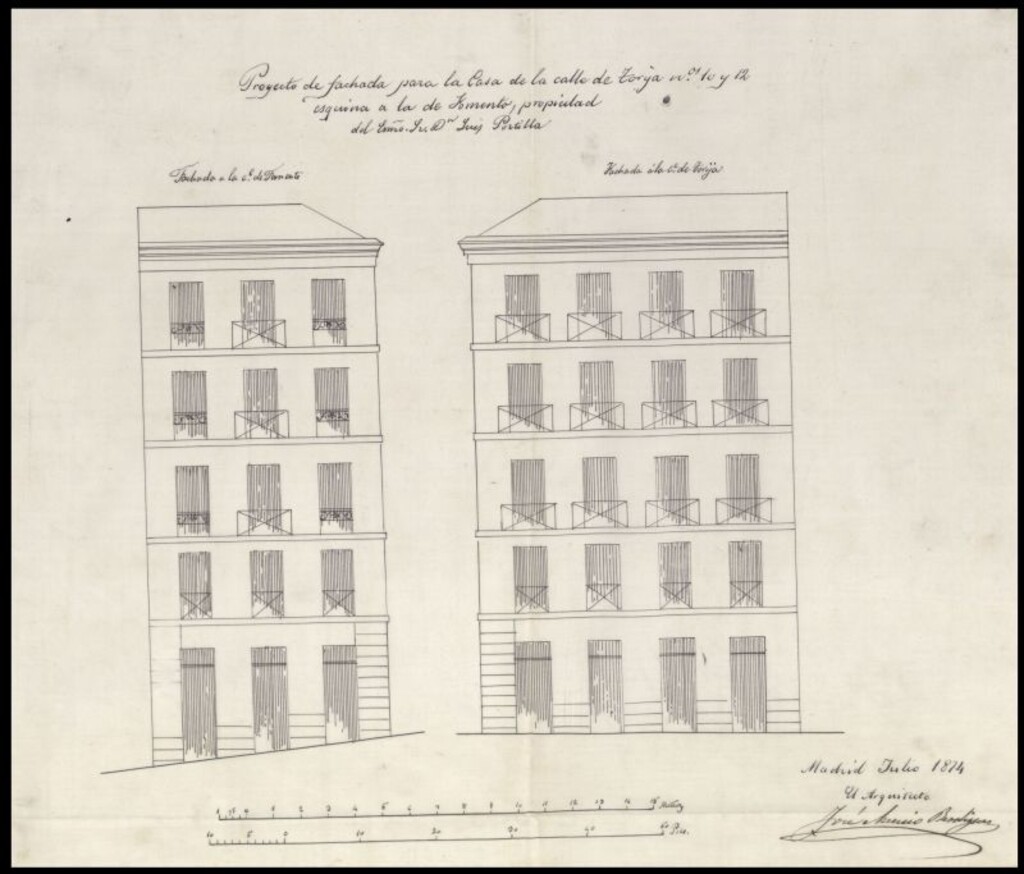 Proyecto de fachada para la Casa de la calle de Torija nos. 10 y 12
esquina a la de Fomento, propiedad
del Excmo. Sr. Dn Luis Portilla
Fachada a la c.e de Fomento
Fachada á la C.e de Torija
1 2 3 4 5 6 7 8 9 10 11 12 13 14 15
10 5 0 10 20 30 40 50 Pies.
Madrid Julio 1874
El Arquitecto
José